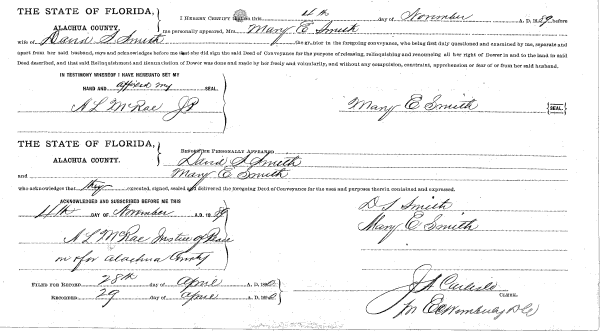 THE STATE OF FLORIDA,
ALACHUA COUNTY.
I HEREBY CERTIFY that on this 4th day of November A. D. 1889, before
me personally appeared, Mrs. Mary E Smith
wife of David S Smith the grantor in the foregoing conveyance, who being first duly questioned and examined by me, separate and
apart from her said husband, says and acknowledges before me that she did sign the said Deed of Conveyance for the purpose of releasing, relinquishing and renouncing all her right of Dower in and to the land in said
Deed described, and that said Relinquishment and Renunciation of Dower was done and made by her freely and voluntarily, and without any compulsion, constraint, apprehension or fear of or from her said husband.
IN TESTIMONY WHEREOF I HAVE HEREUNTO SET MY
HAND AND affixed my SEAL.
A L McRae JP
Mary E Smith
SEAL.
THE STATE OF FLORIDA,
ALACHUA COUNTY.
BEFORE ME PERSONALLY APPEARED
David S Smith
and Mary E Smith
who acknowledges that they executed, signed, sealed and delivered the foregoing Deed of Conveyance for the uses and purposes therein contained and expressed.
ACKNOWLEDGED AND SUBSCRIBED BEFORE ME THIS
4th DAY OF November A.D. 1889
A L McRae Justice of Peace
in & for Alachua County
D S Smith
Mary E Smith
FILED FOR RECORD 28th day of April A. D. 1890
RECORDED 29 day of April A. D. 1890
J A Carlisle
CLERK.